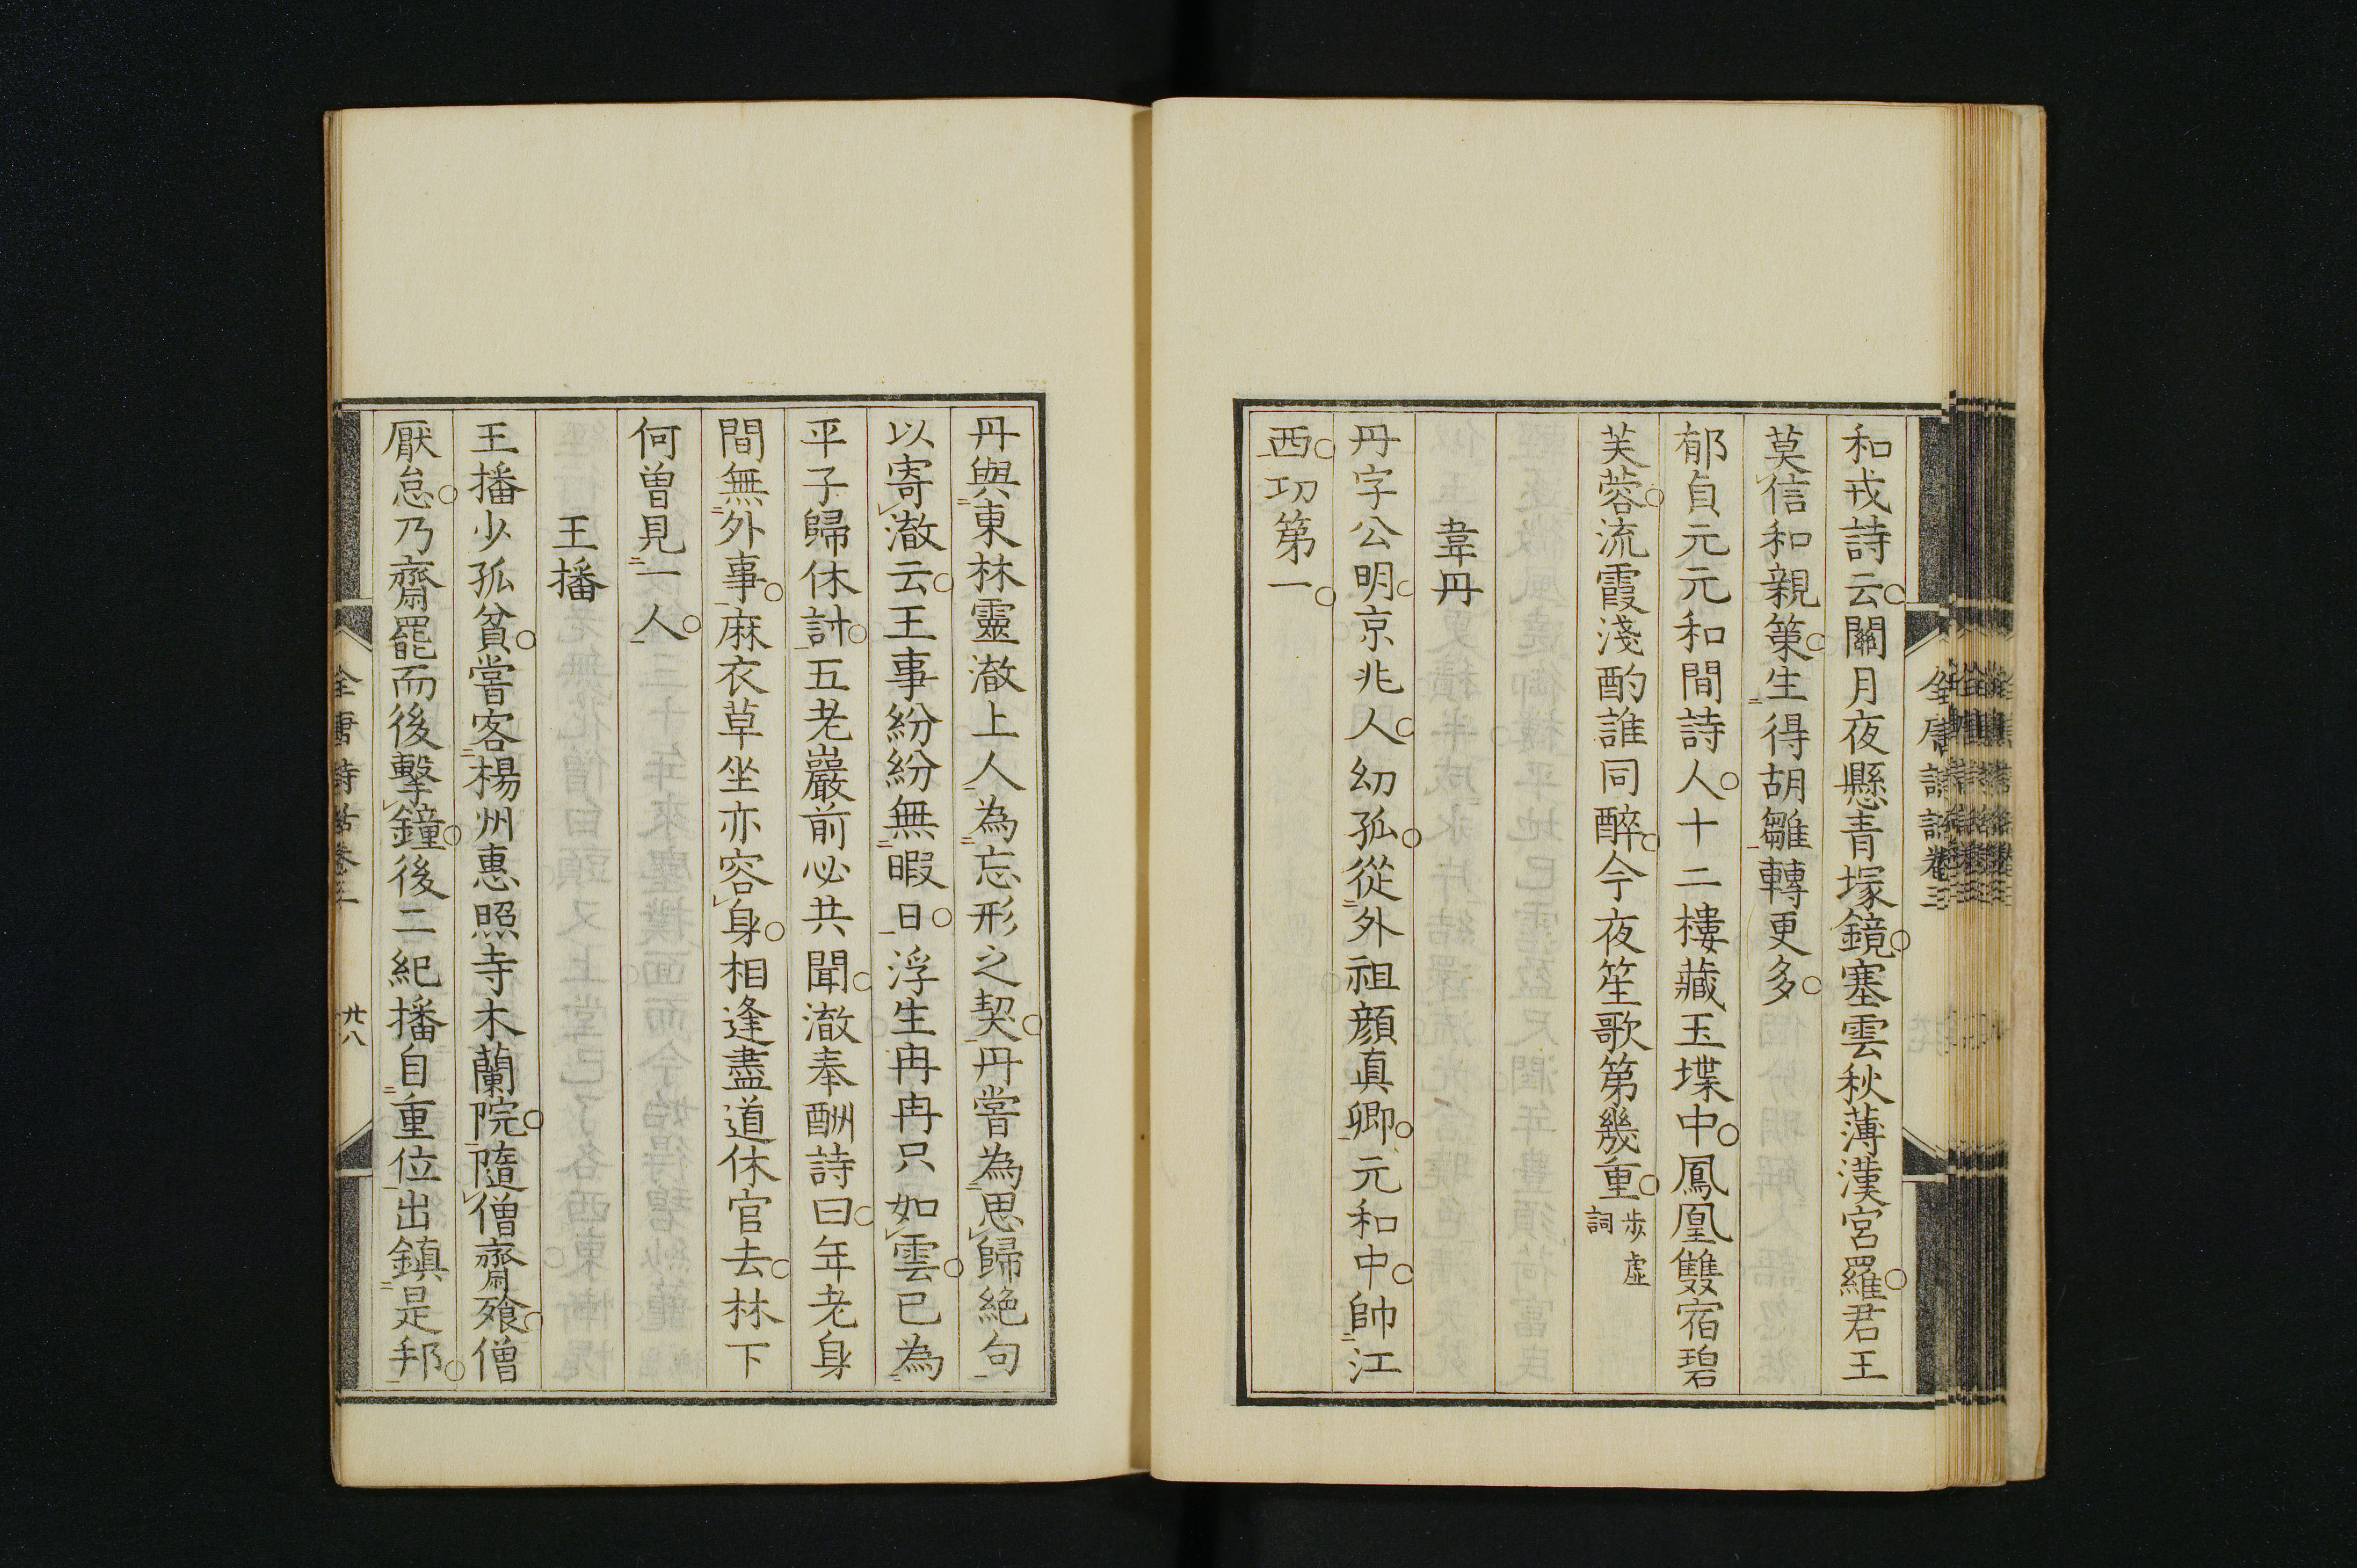 和戎詩云關月夜懸青塚鏡塞雲秋薄漢宮羅君王
莫信和親策生得胡雛轉更多
郁貞元元和間詩人十二樓藏玉堞中鳳凰雙宿碧
芙蓉流霞淺酌誰同醉今夜笙歌第幾重步虛
詞
韋丹
丹字公明京兆人幼孤從外祖顏真卿元和中帥江
西功第一
丹與東林靈澈上人為忘形之契丹嘗為思歸絕句
以寄澈云王事紛紛無暇日浮生冉冉只如雲已為
平子歸休計五老巖前必共聞澈奉酬詩曰年老身
間無外事麻衣草坐亦容身相逢盡道休官去林下
何曾見一人
王播
王播少孤貧嘗客楊州惠照寺木蘭院隨僧齋飱僧
厭怠乃齋罷而後擊鐘後二紀播自重位出鎮是邦
全唐詩話卷三
廿八